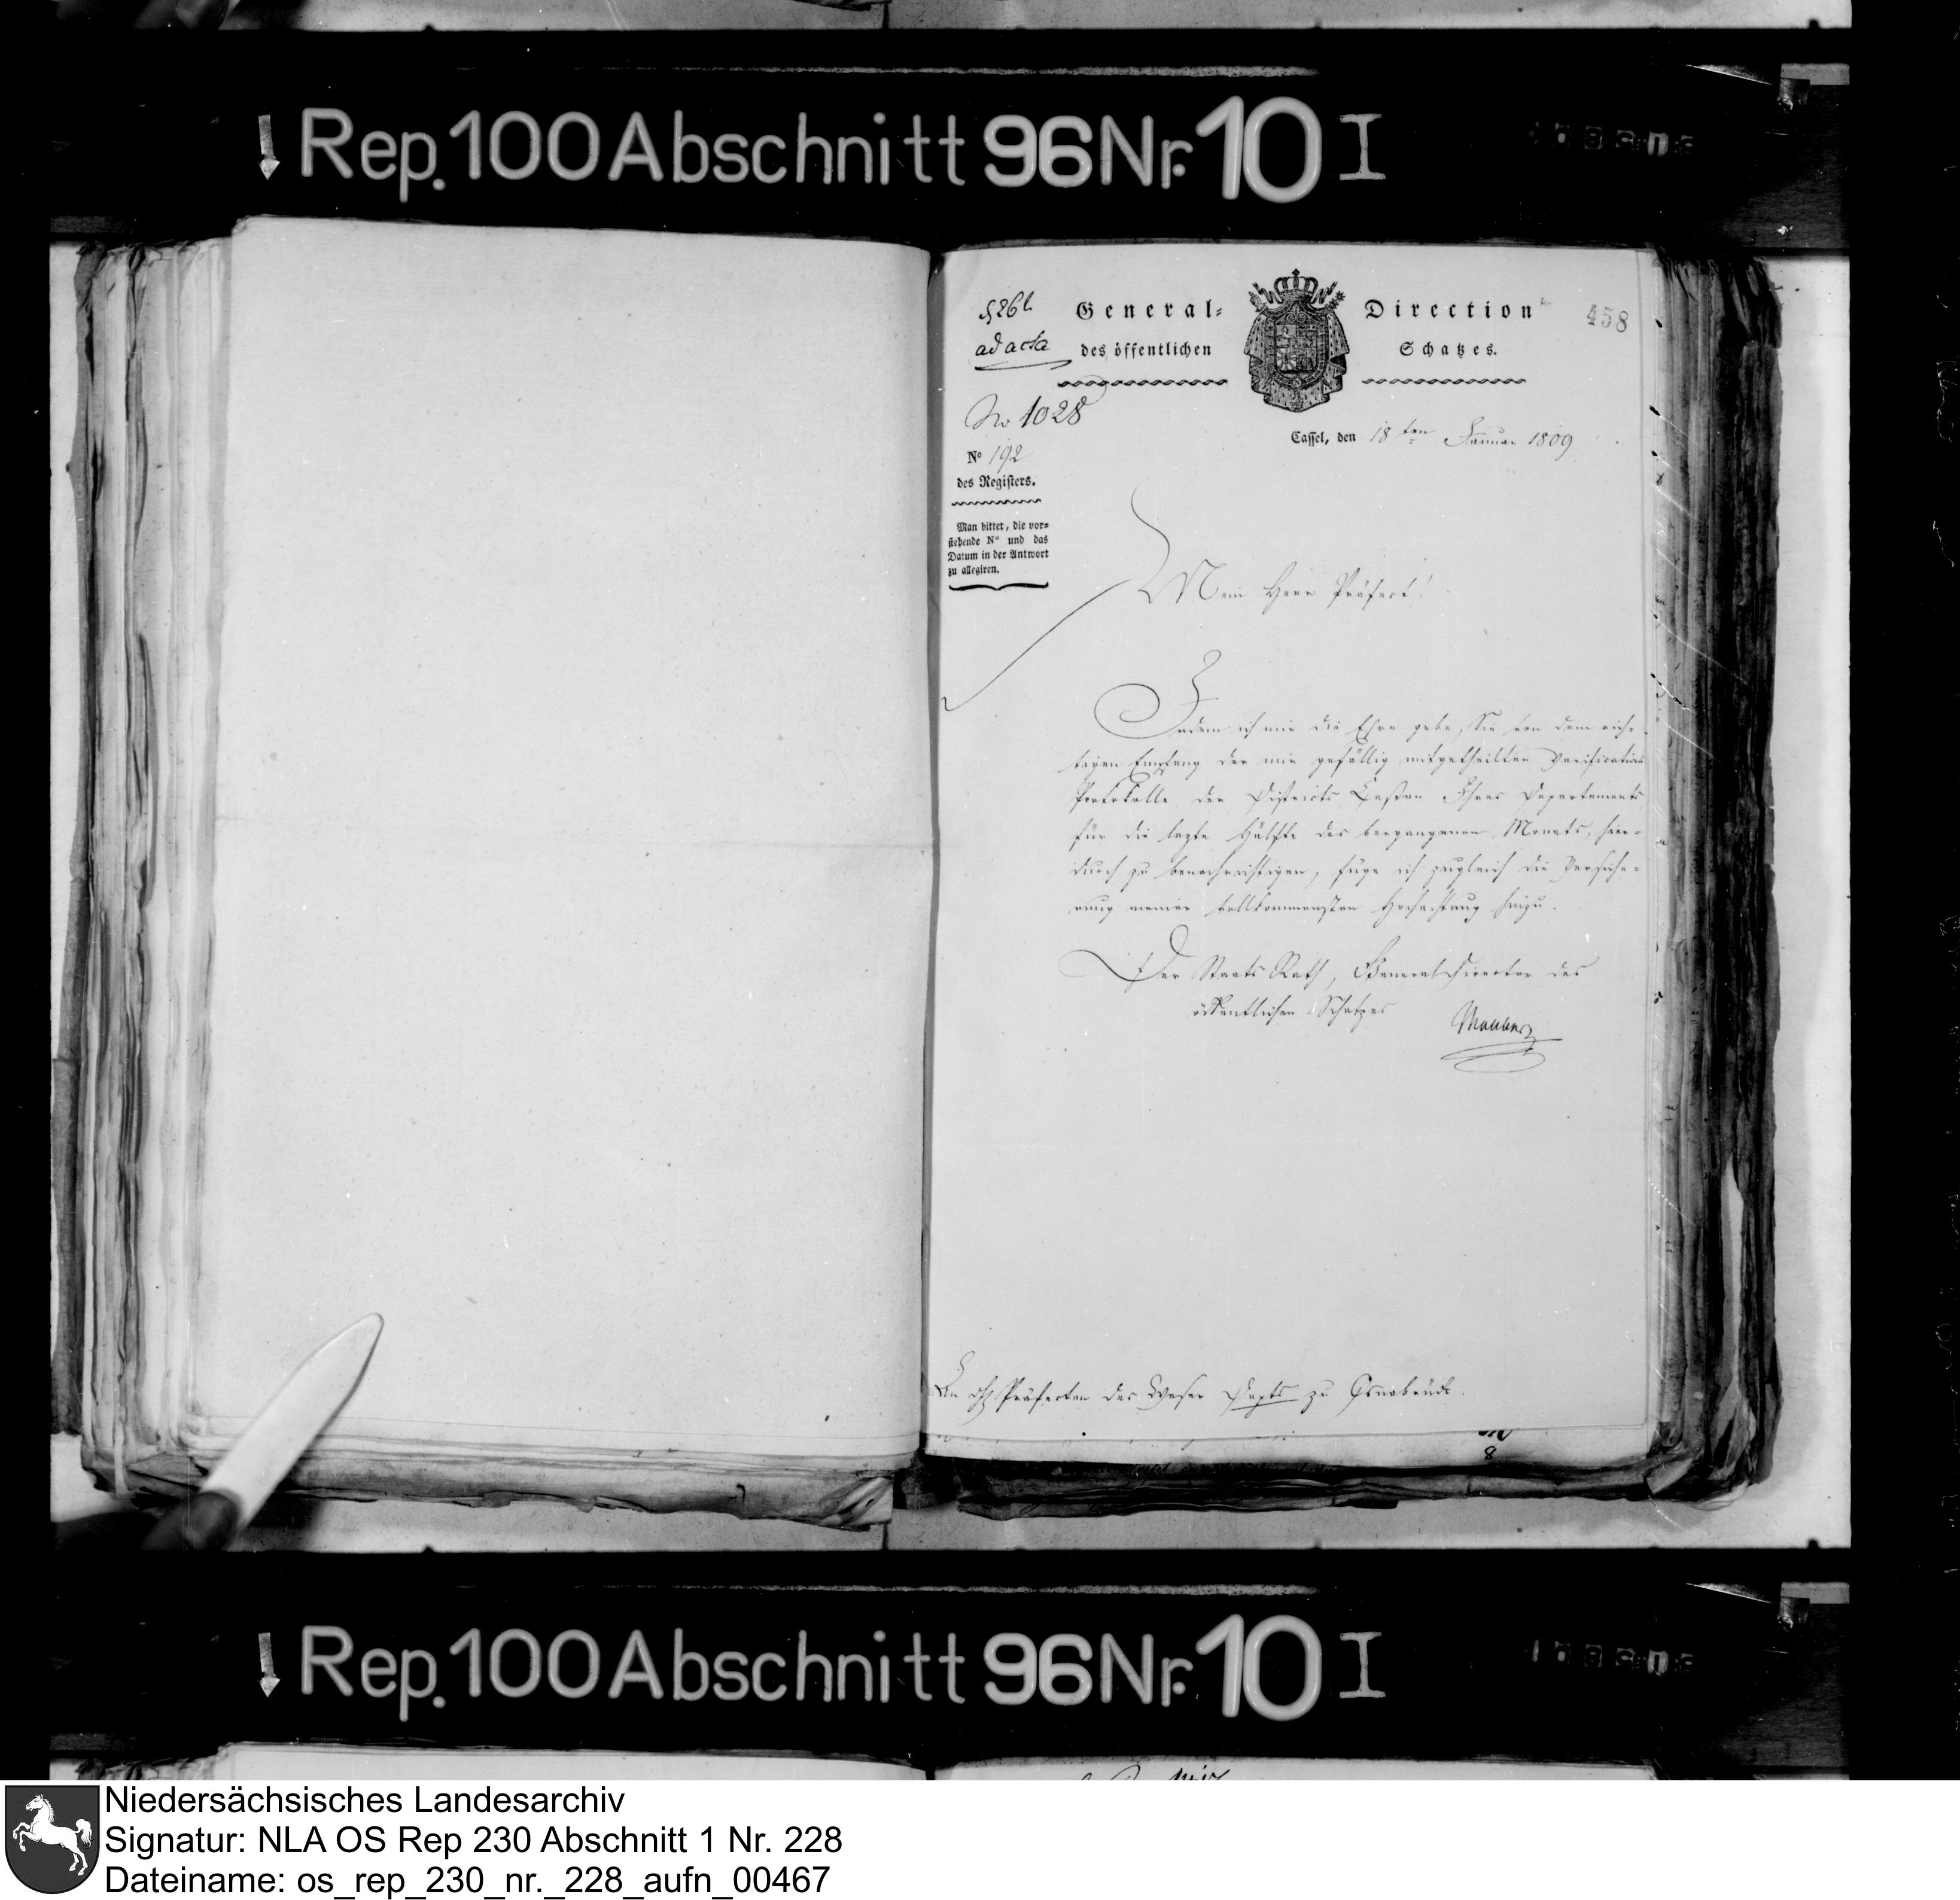 Rep. 100 Abschnitt 96 Nr. 10 I
ad acta
General-
Direction
458
des öffentlichen
Schatzes.
No 1028
Cassel, den 18ten Januar 1809
No 192
des Registers.
Man bittet, die vor-
stehende No und das
Datum in der Antwort
zu allegiren.
Mein Herr Präfect!
Indem ich mir die Ehre gebe, Sie von dem rich-
tigen Empfang der mir gefällig mitgetheilten Verifications
Protokolle der Districts Cassen Ihres Departements
für die lezte Hälfte des vergangenen Monats, hier-
durch zu benachrichtigen, füge ich zugleich die Versiche-
rung meiner vollkommensten Hochachtung hinzu.
Der Staats Rath, General Director des
öffentlichen Schatzes
An Präfecten des Weser Depts zu Osnabrück.
8
Rep. 100 Abschnitt 96 Nr. 10 I
Niedersächsisches Landesarchiv
Signatur: NLA OS Rep 230 Abschnitt 1 Nr. 228
Dateiname: os_rep_230_nr._228_aufn_00467